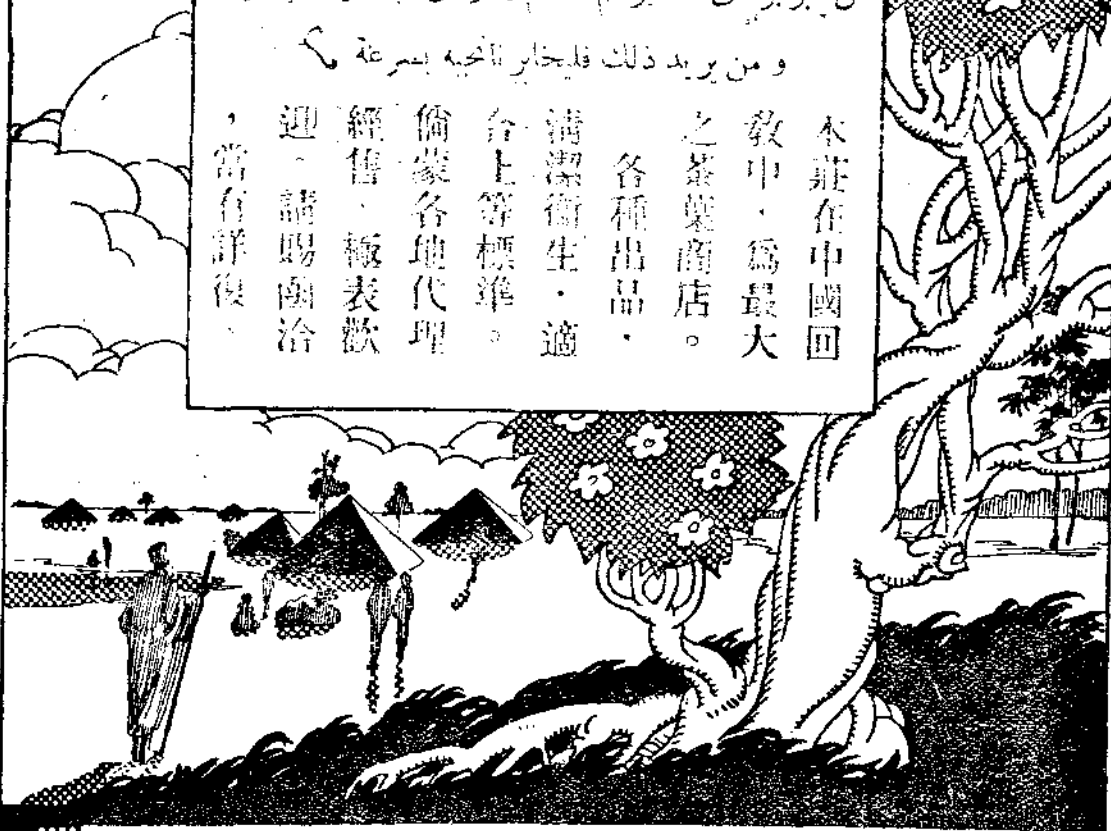 و من يريد ذلك فليخابر ناحيه بسرعة
本莊在中國回
教中、爲最大
之茶葉商店。
各種出品、
清潔衛生、適
合上等標準。
倘蒙各地代理
經售、極表歡
迎。請賜函洽
，當有詳復、